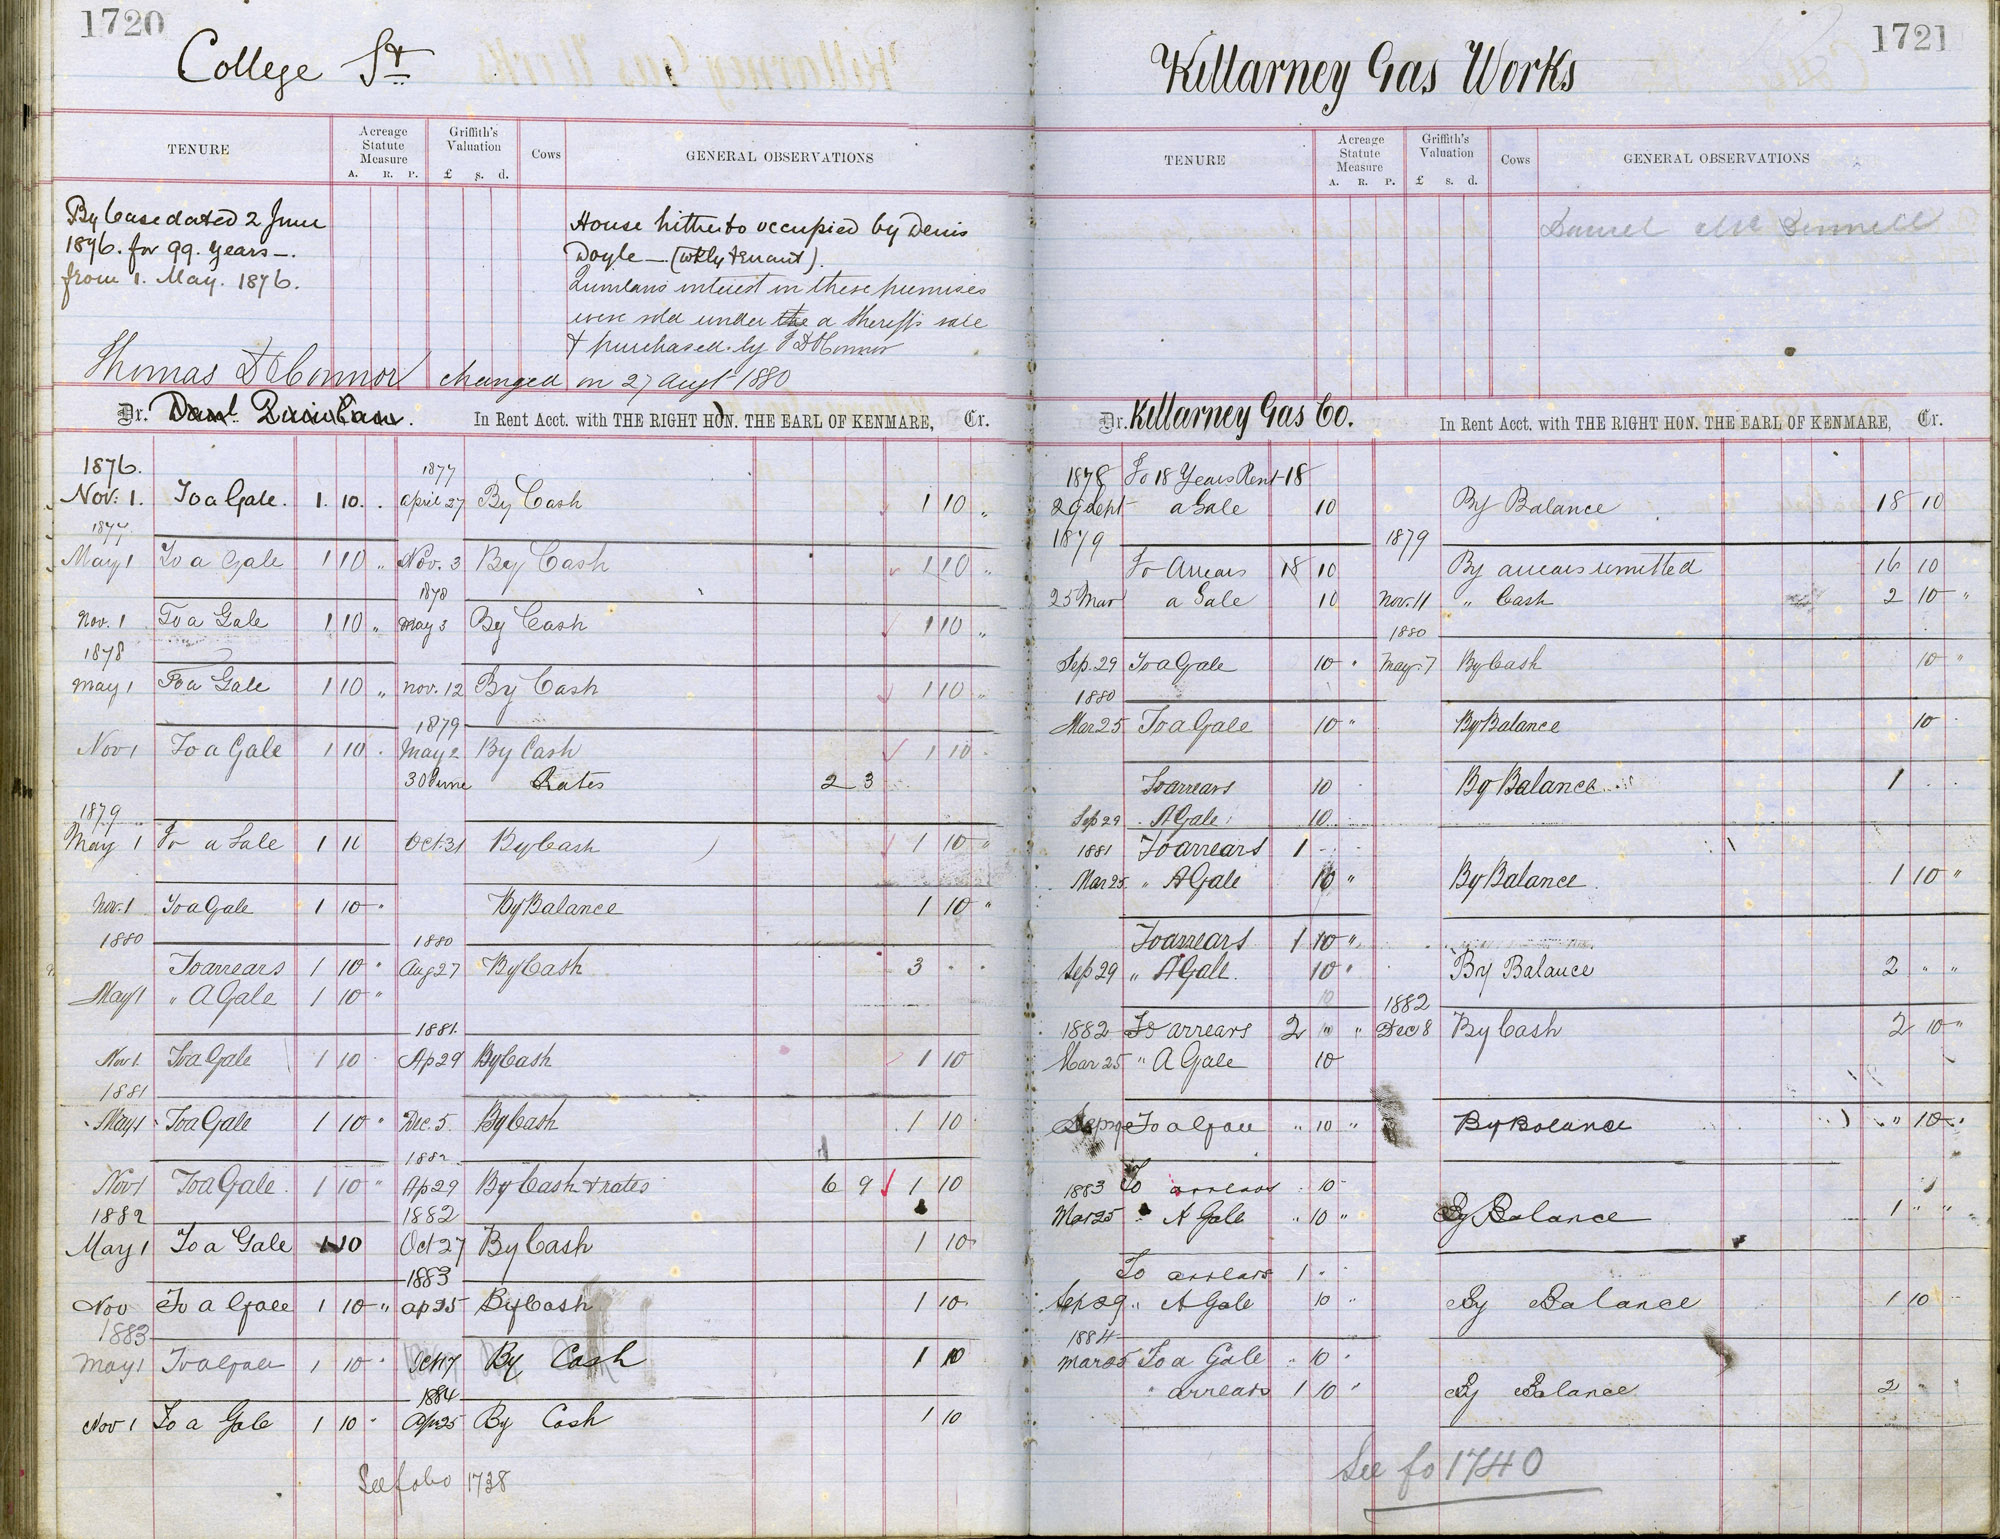 1720
College St
TENURE
Acreage Statute Measure
A. R. P.
Griffith's Valuation
£ s. d.
Cows
GENERAL OBSERVATIONS
By lease dated 2 June
1876. for 99. years -.
from 1. May. 1876.
House hitherto occupied by Denis
Doyle - (wkly tenant).
Quinlans interest in these premises
were sold under the a Sheriffs sale
& purchased by T D O'Connor
Thomas D O'Connor changed on 27 Augt 1880
Dr. Danl. Quinlan. In Rent Acct. with THE RIGHT HON. THE EARL OF KENMARE, Cr.
1876. 1877
Nov. 1. To a Gale. 1. 10. . April 27 By Cash 1 10 "
1877
May 1 To a Gale 1 10 " Nov. 3 By Cash 1 10 "
1878
Nov. 1 To a Gale 1 10 " May 3 By Cash 1 10 "
1878
May 1 To a Gale 1 10 " Nov. 12 By Cash 1 10 "
1879
Nov 1 To a Gale 1 10 . May 2 By Cash 1 10 .
30 June Rates 2 3
1879
May 1 To a Gale 1 10 Oct 31 By Cash 1 10 "
Nov. 1 To a Gale 1 10 " By Balance 1 10 "
1880 1880
To arrears 1 10 " Aug 27 By Cash 3 . .
May 1 " A Gale 1 10 "
1881.
Nov 1. To a Gale 1 10 Ap 29 By Cash 1 10
1881
May 1 To a Gale 1 10 " Dec. 5. By Cash 1 10
1882
Nov 1 To a Gale 1 10 " Ap 29 By Cash & rates 6 9 1 10
1882 1882
May 1 To a Gale 1 10 Oct 27 By Cash 1 10
1883
Nov To a Gale 1 10 " Ap 25 By Cash 1 10
1883
May 1 To a Gale 1 10 " Oct 17 By Cash 1 10
1884
Nov 1 To a Gale 1 10 " Apr 25 By Cash 1 10
See folio 1738
1721
Killarney Gas Works
TENURE
Acreage Statute Measure
A. R. P.
Griffith's Valuation
£ s. d.
Cows
GENERAL OBSERVATIONS
Daniel Mc
Dr. Killarney Gas Co. In Rent Acct. with THE RIGHT HON. THE EARL OF KENMARE, Cr.
1878 To 18 Years Rent 18
29 Sept a Gale 10 By Balance 18 10
1879 1879
To Arrears 18 10 By arrears remitted 16 10
25 Mar a Gale 10 Nov. 11 " Cash 2 10 "
1880
Sep. 29 To a Gale 10 " May. 7 By Cash 10 "
1880
Mar 25 To a Gale 10 " By Balance 10
To arrears 10 By Balance 1 . .
Sep 29 . A Gale 10
1881 To arrears 1 - -
Mar 25. " A Gale 10 " By Balance 1 10 "
To arrears 1 10 "
Sep 29 " A Gale. 10 " By Balance 2 " "
1882
1882 To arrears 2 " " Dec 8 By Cash 2 10 "
Mar 25 " A Gale 10
To a Gale " 10 " By Balance " 10 "
1883 To arrears 10
Mar 25 " A Gale " 10 " By Balance 1 " "
To arrears 1 .
Sep 29 " A Gale 10 " By Balance 1 10
1884
Mar 25 To a Gale " 10 "
" arrears 1 10 " By Balance 2 "
See fo 1740